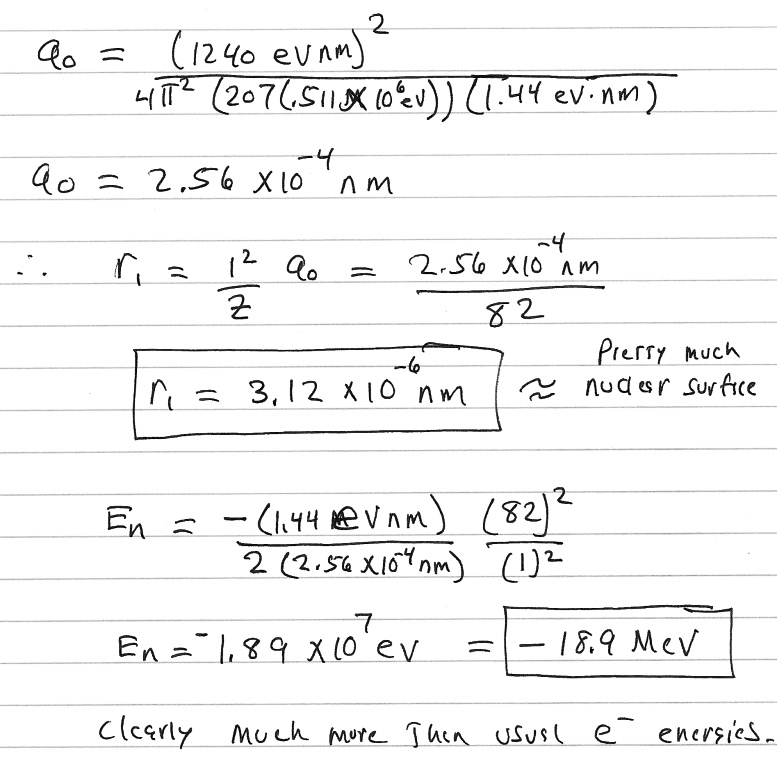 a₀ = (1240 eV nm)² / 4π² (207(.511 × 10⁶ eV)) (1.44 eV·nm)
a₀ = 2.56 × 10⁻⁴ nm
∴ r₁ = 1²/Z a₀ = 2.56 × 10⁻⁴ nm / 82
r₁ = 3.12 × 10⁻⁶ nm ≈ Pretty much nuclear surface
Eₙ = -(1.44 eV nm) / 2 (2.56 × 10⁻⁴ nm) (82)² / (1)²
Eₙ = -1.89 × 10⁷ eV = -18.9 MeV
Clearly much more than usual e⁻ energies.